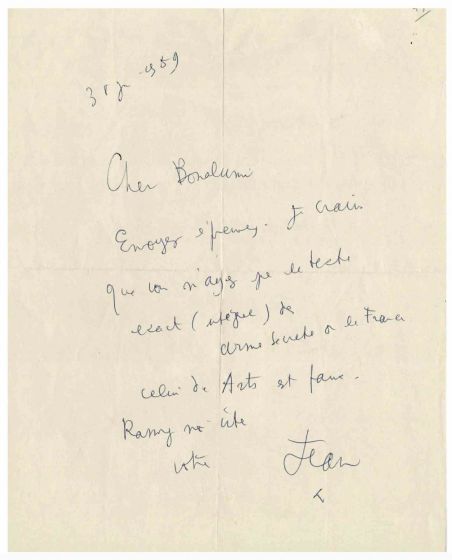 1959
Cher Bonalumi
Envoyez épreuves. Je crains
que vous n'ayez pas le texte
exact (intégral) de
arme secrète de la France
celui de Arts est faux.
Rassurez-moi vite
votre Jean